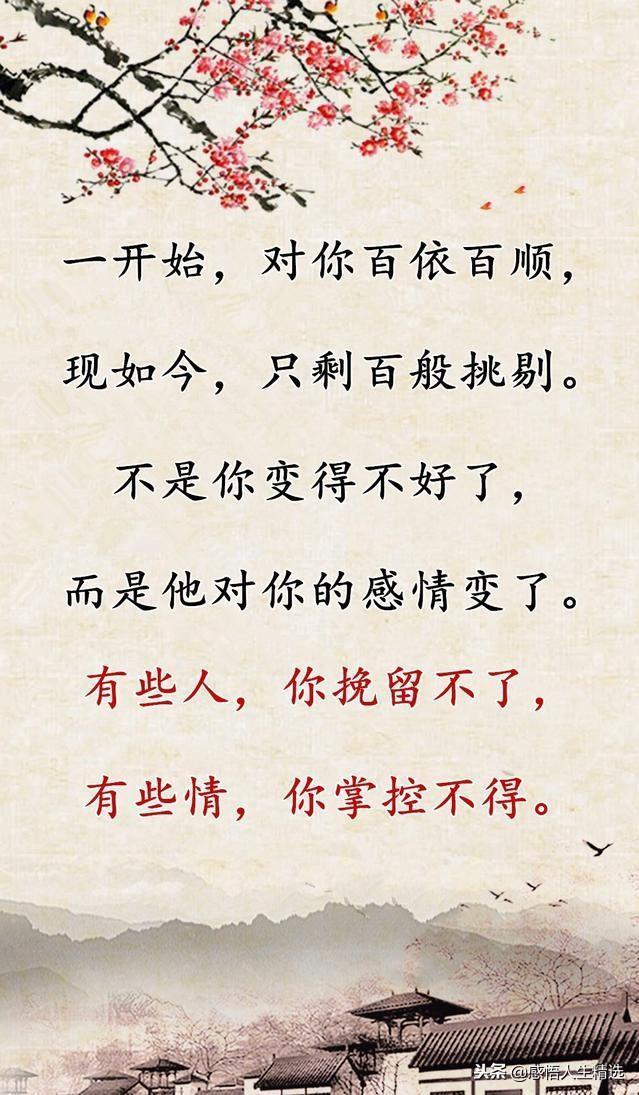 一开始，对你百依百顺，
现如今，只剩百般挑剔。
不是你变得不好了，
而是他对你的感情变了。
有些人，你挽留不了，
有些情，你掌控不得。
头条 @感悟人生精选